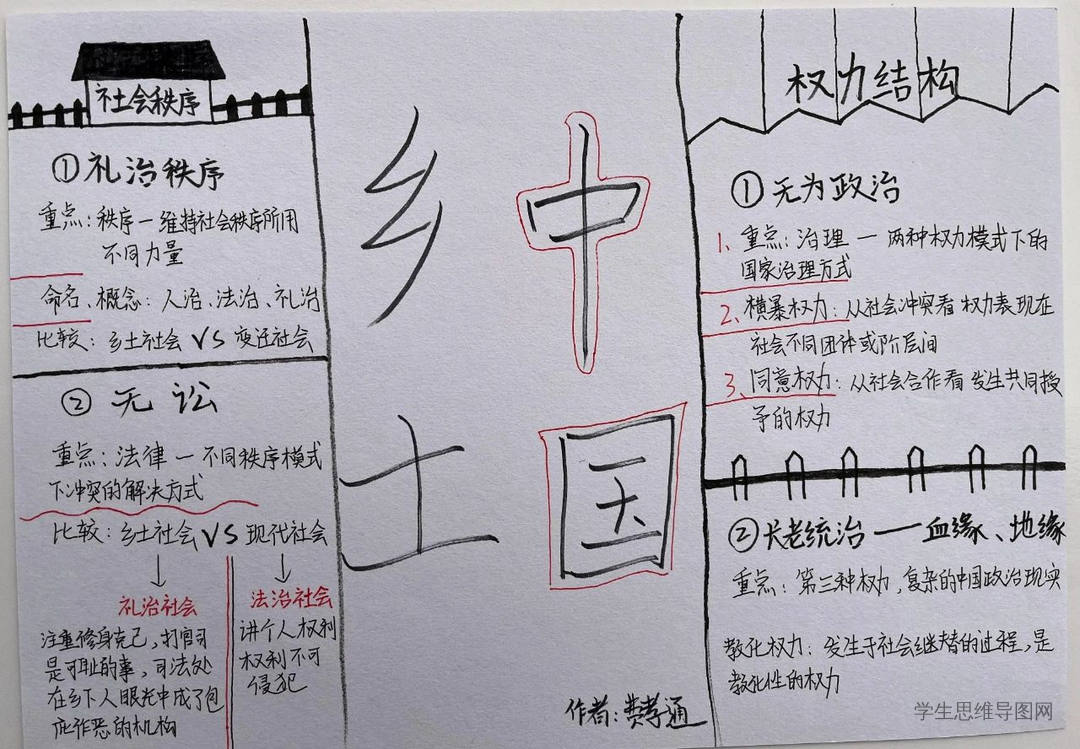 社会秩序
①礼治秩序
重点：秩序一维持社会秩序所用
不同力量
命名、概念：人治、法治、礼治
比较：乡土社会 VS 变迁社会
② 无讼
重点：法律一不同秩序模式
下冲突的解决方式
比较：乡土社会 VS 现代社会
礼治社会
注重修身克己，打官司
是可耻的事，司法处
在乡下人眼光中成了包
庇作恶的机构
法治社会
讲个人权利
权利不可
侵犯
乡土
中国
作者：费孝通
权力结构
①无为政治
1、重点：治理一两种权力模式下的
国家治理方式
2、横暴权力：从社会冲突看 权力表现在
社会不同团体或阶层间
3、同意权力：从社会合作看 发生共同授
予的权力
②长老统治——血缘、地缘
重点：第三种权力，复杂的中国政治现实
教化权力：发生于社会继替的过程，是
教化性的权力
学生思维导图网